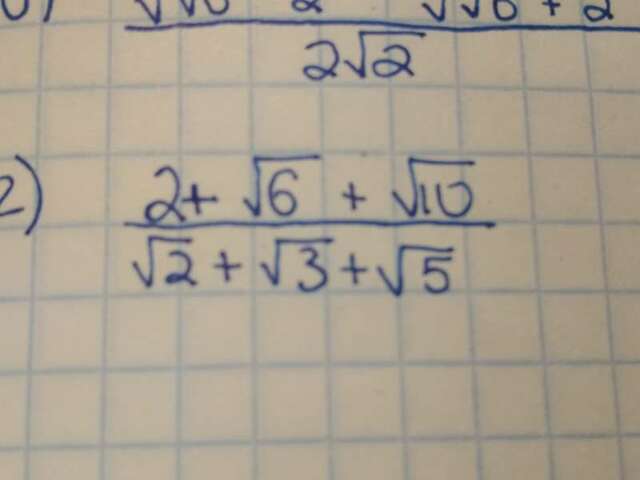 2√2
2) 2 + √6 + √10
√2 + √3 + √5